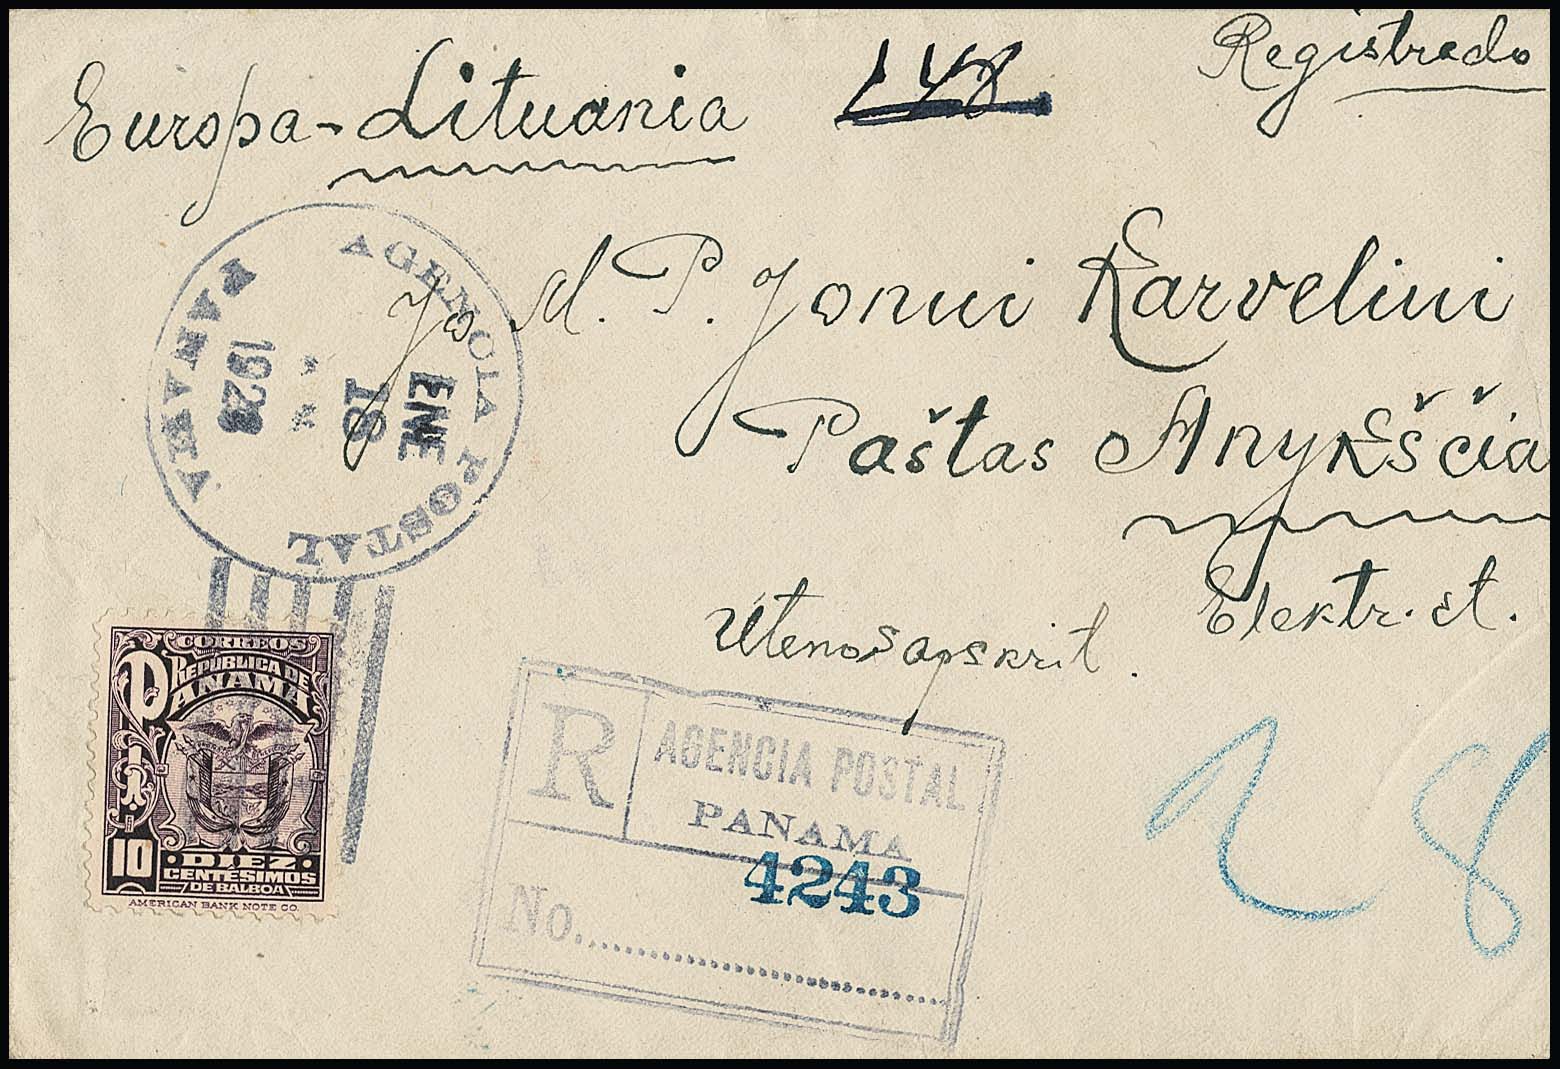 Registrado
Europa - Lituania
Jo M. P. Jonui Karveliui
Paštas Anykščia
Elektr. st.
Utenos apskrit.
AGENCIA POSTAL
PANAMA
ENE
18
1928
CORREOS
REPÚBLICA DE
PANAMA
10
DIEZ
CENTESIMOS
DE BALBOA
AMERICAN BANK NOTE CO.
R
AGENCIA POSTAL
PANAMA
4243
No.
28